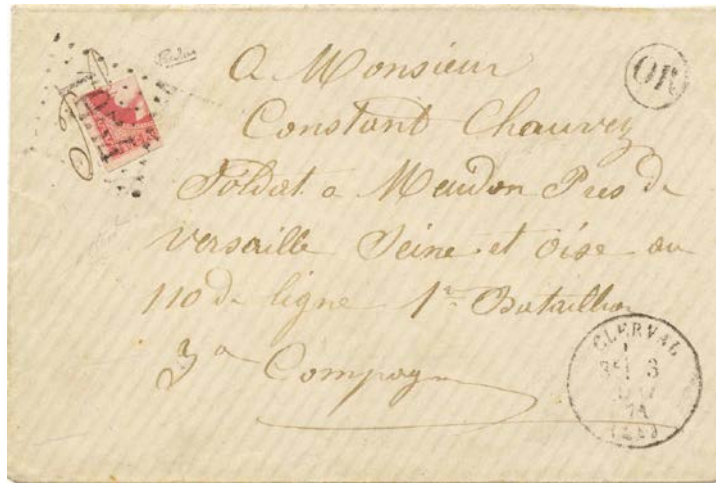 OR
A Monsieur
Constant Chauvey
Soldat a Meudon Pres de
Versaille Seine et Oise au
110 de ligne 1er Bataillon
3e Compagn
CLERVAL
3E 3
71